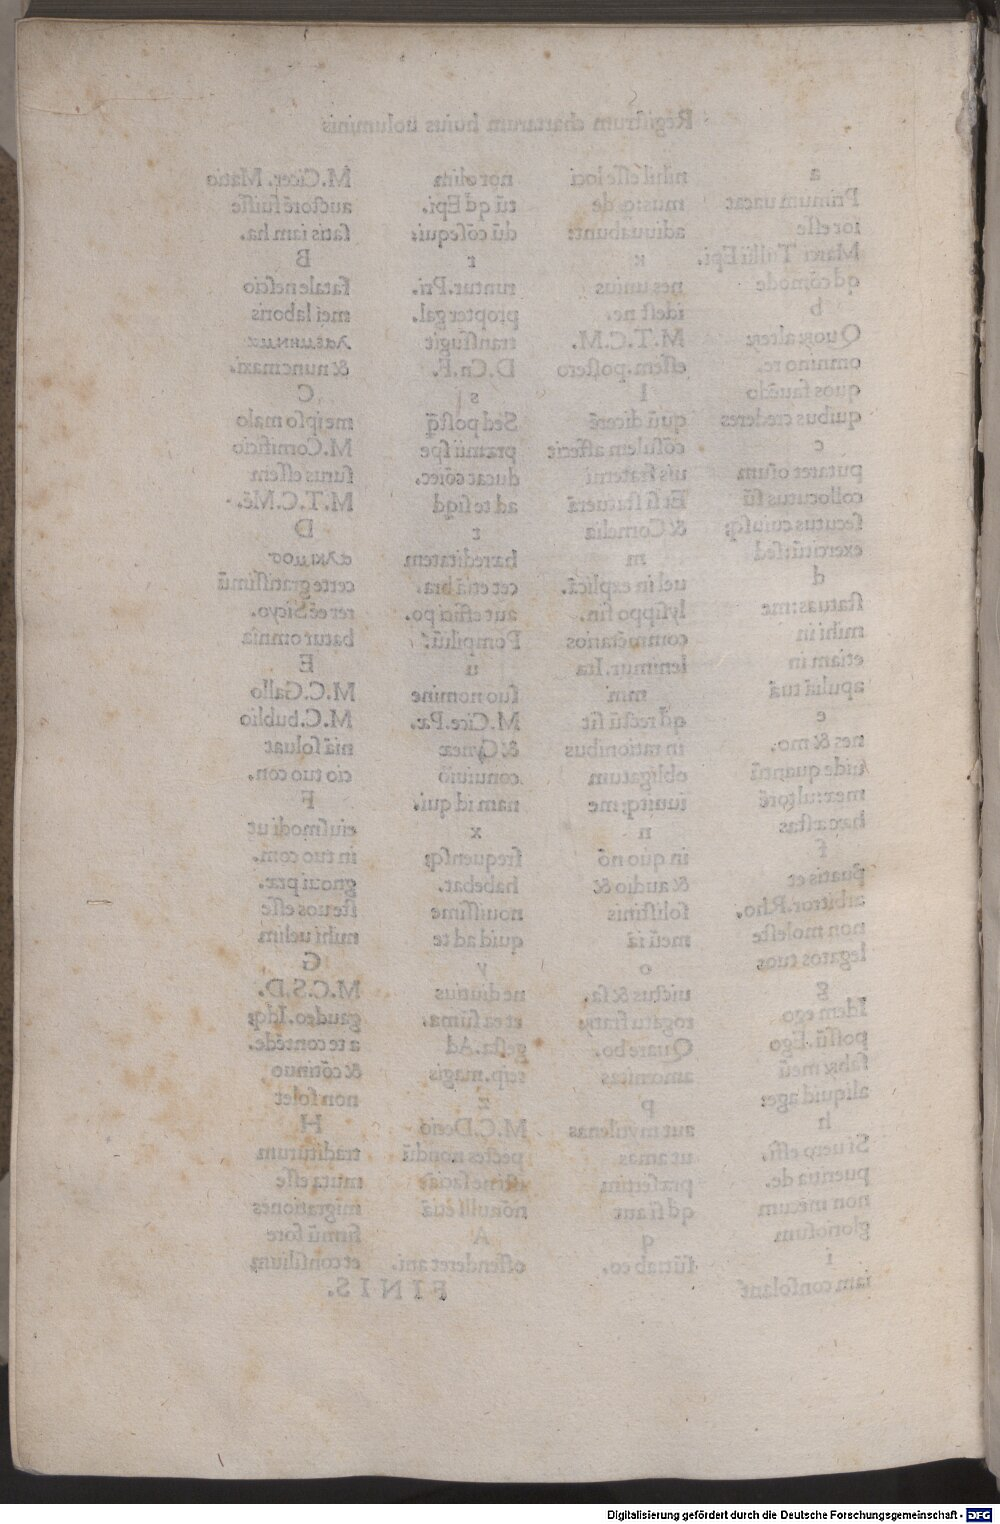 Registrum chartarum huius uoluminis
a
Primum uacat
ior esse
Marci Tullii Epi.
qd cōmode
b
omnino re.
quos fauēdo
quibus crederes
c
putaret otium
collocutus sū
exercitū:sed
d
statuas:me
mihi in
etiam in
apuliā tuā
e
nes & mo.
uide quantū
hæc æstas
f
arbitror. Rho.
non moleste
legatos tuos
g
Idem ego
possū. Ego
aliquid age:
h
Si uero essi.
pueritia de.
non mecum
gloriosum
i
nihil esse loci
adiuuabunt:
k
nes unius
idest ne.
M.T.C.M.
essem. postero
l
quū dicerē
cōsulem affecit
uis fraterni
Et si statuerā
& Cornelia
m
uel in explicā.
lysippo fin.
commētarios
lenimur. Ita
mm
qd rectū sit
in rationibus
obligatum
n
in quo nō
& audio &
solistinis
meū iā
o
uictus & fa.
Quare bo.
amornicas
p
aut mytilenas
ut amas
præsertim
qd si aut
q
tū qd Epi.
dū cōsequi:
r
runtur. Pri.
propter gal.
transfugit
D. Cn. F.
s
Sed postq̄
præmii spe
ducat cōiec.
ad te siqd
t
hæreditatem
cet etiā bra.
aut effici po.
Pompiliū:
u
suo nomine
M. Cice. Pæ.
conuiuiō
nam id qui.
x
frequensq;
habebat.
nouissime
quid ad te
y
ne diutius
et ea sūma.
gesta. Ad
z
pectes nondū
nōnulli etiā
A
offenderet ani.
M. Cicer. Matio
auctorē fuisse
satis iam ha.
B
fatale nescio
mei laboris
& nunc maxi.
C
me ipso malo
M. Cornificio
M. T. C. Mē.
D
certe gratissimū
rer eē Sicyo.
batur omnia
E
M. C. Gallo
M. C. bublio
niā soluat
cio tuo con.
F
eiusmodi ut
in tuo com.
gnoui præ.
mihi uelim
G
M. C. S. D.
gaudeo. Idq;
a te contēde.
& cōtinuo
non solet
H
traditurum
muta esse
migrationes
firmū fore
et consilium
FINIS.
Digitalisierung gefördert durch die Deutsche Forschungsgemeinschaft - DFG